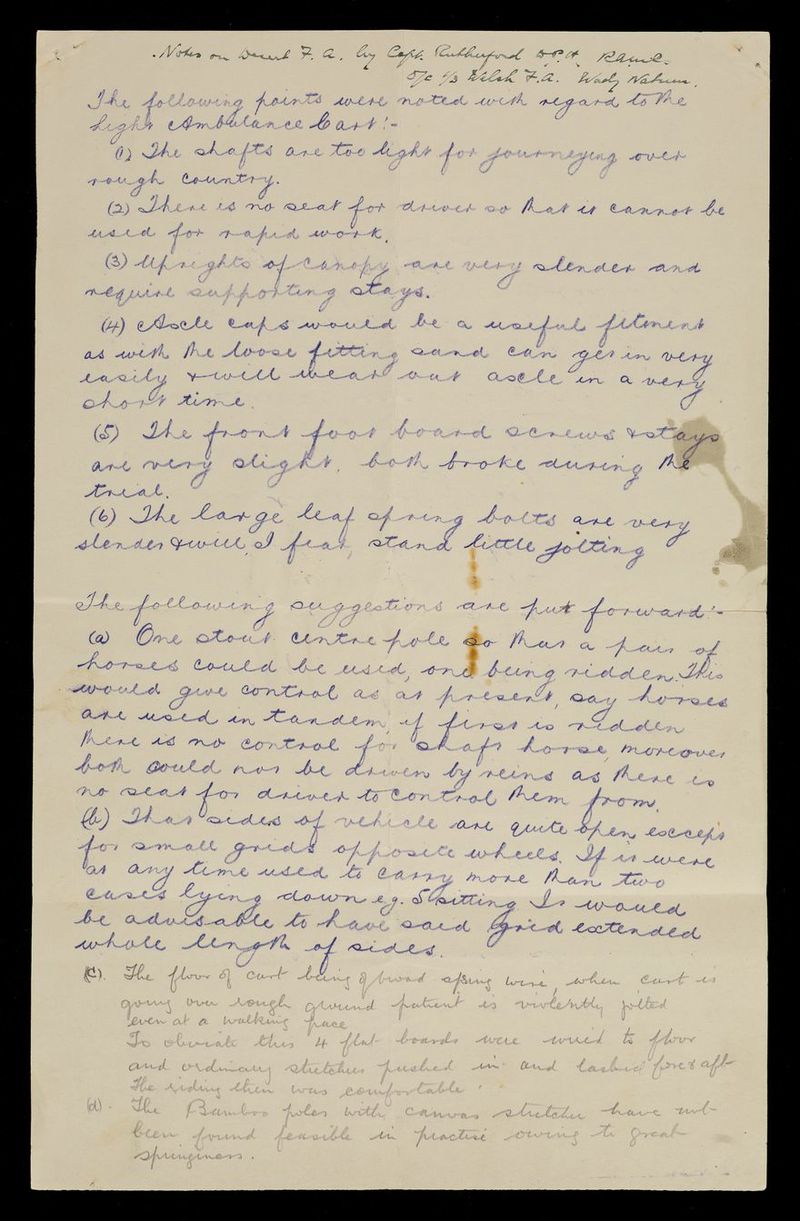 Notes on Desert F.A. by Capt. Rutherford D.P.H. RAMC.
O/c 1/3 Welsh F.A. Wady Natrun.
The following points were noted with regard to the
Light Ambulance Cart :-
(1) The shafts are too light for journeying over
rough country.
(2) There is no seat for driver so that it cannot be
used for rapid work.
(3) Uprights of Canopy are very slender and
require supporting stays.
(4) Axle caps would be a useful fitment
as with the loose fitting sand can get in very
easily & will wear out axle in a very
short time.
(5) The front foot board screws & stays
are very slight, both broke during the
trial.
(6) The large leaf spring bolts are very
slender & will, I fear, stand little jolting
The following suggestions are put forward :-
(a) One stout centre pole so that a pair of
horses could be used, one being ridden. This
would give control as at present, say horses
are used in tandem, if first is ridden
there is no control for shaft horse, moreover
both could not be driven by reins as there is
no seat for driver to control them from.
(b) That sides of vehicle are quite open except
for small grids opposite wheels. If it were
at any time used to carry more than two
cases lying down e.g. 5 sitting It would
be advisable to have said grid extended
whole length of sides.
(c). The floor of cart being of broad spring wire, when cart is
going over rough ground patient is violently jolted
even at a walking pace
To obviate this 4 flat boards were wired to floor
and ordinary stretcher pushed in and lashed fore & aft
The riding then was comfortable.
(d). The Bamboo poles with canvas stretcher have not
been found feasible in practise owing to great
springiness.